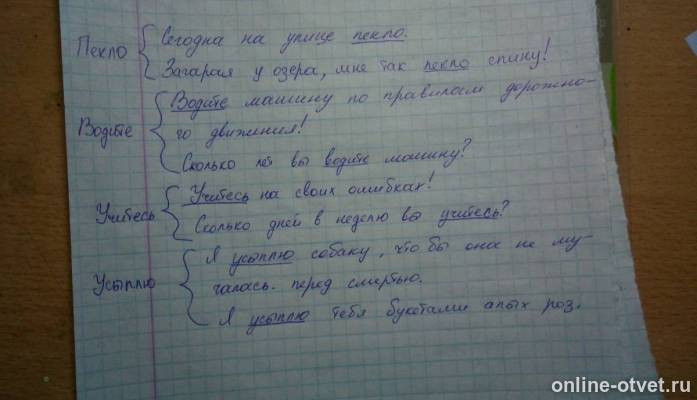 Пекло
Сегодня на улице пекло.
Загорая у озера, мне так пекло спину!
Водите
Водите машину по правилам дорожно-
го движения!
Сколько лет вы водите машину?
Учитесь
Учитесь на своих ошибках!
Сколько дней в неделю вы учитесь?
Усыплю
Я усыплю собаку, что бы она не му-
чалась. перед смертью.
Я усыплю тебя букетами алых роз.
online-otvet.ru